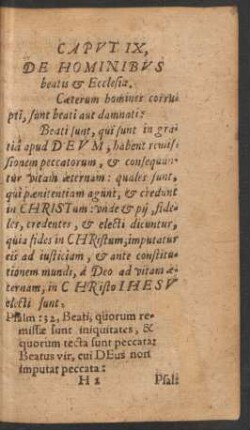 CAPVT IX,
DE HOMINIBVS
beatis & Ecclesia.
Cæterum homines corru-
pti, sunt beati aut damnati?
Beati sunt, qui sunt in gra-
tiâ apud DEVM, habent remis-
sionem peccatorum, & consequan-
tur vitam æternam: quales sunt,
qui pœnitentiam agunt, & credunt
in CHRISTum: vnde & pij, fide-
les, credentes, & electi dicuntur,
quia fides in CHRistum, imputatur
eis ad iusticiam, & ante constitu-
tionem mundi, à Deo ad vitam æ-
ternam, in CHRisto IHESV
electi sunt.
Psalm: 32, Beati, quorum re-
missæ sunt iniquitates, &
quorum tecta sunt peccata:
Beatus vir, cui DEus non
imputat peccata:
H 2 Psal: